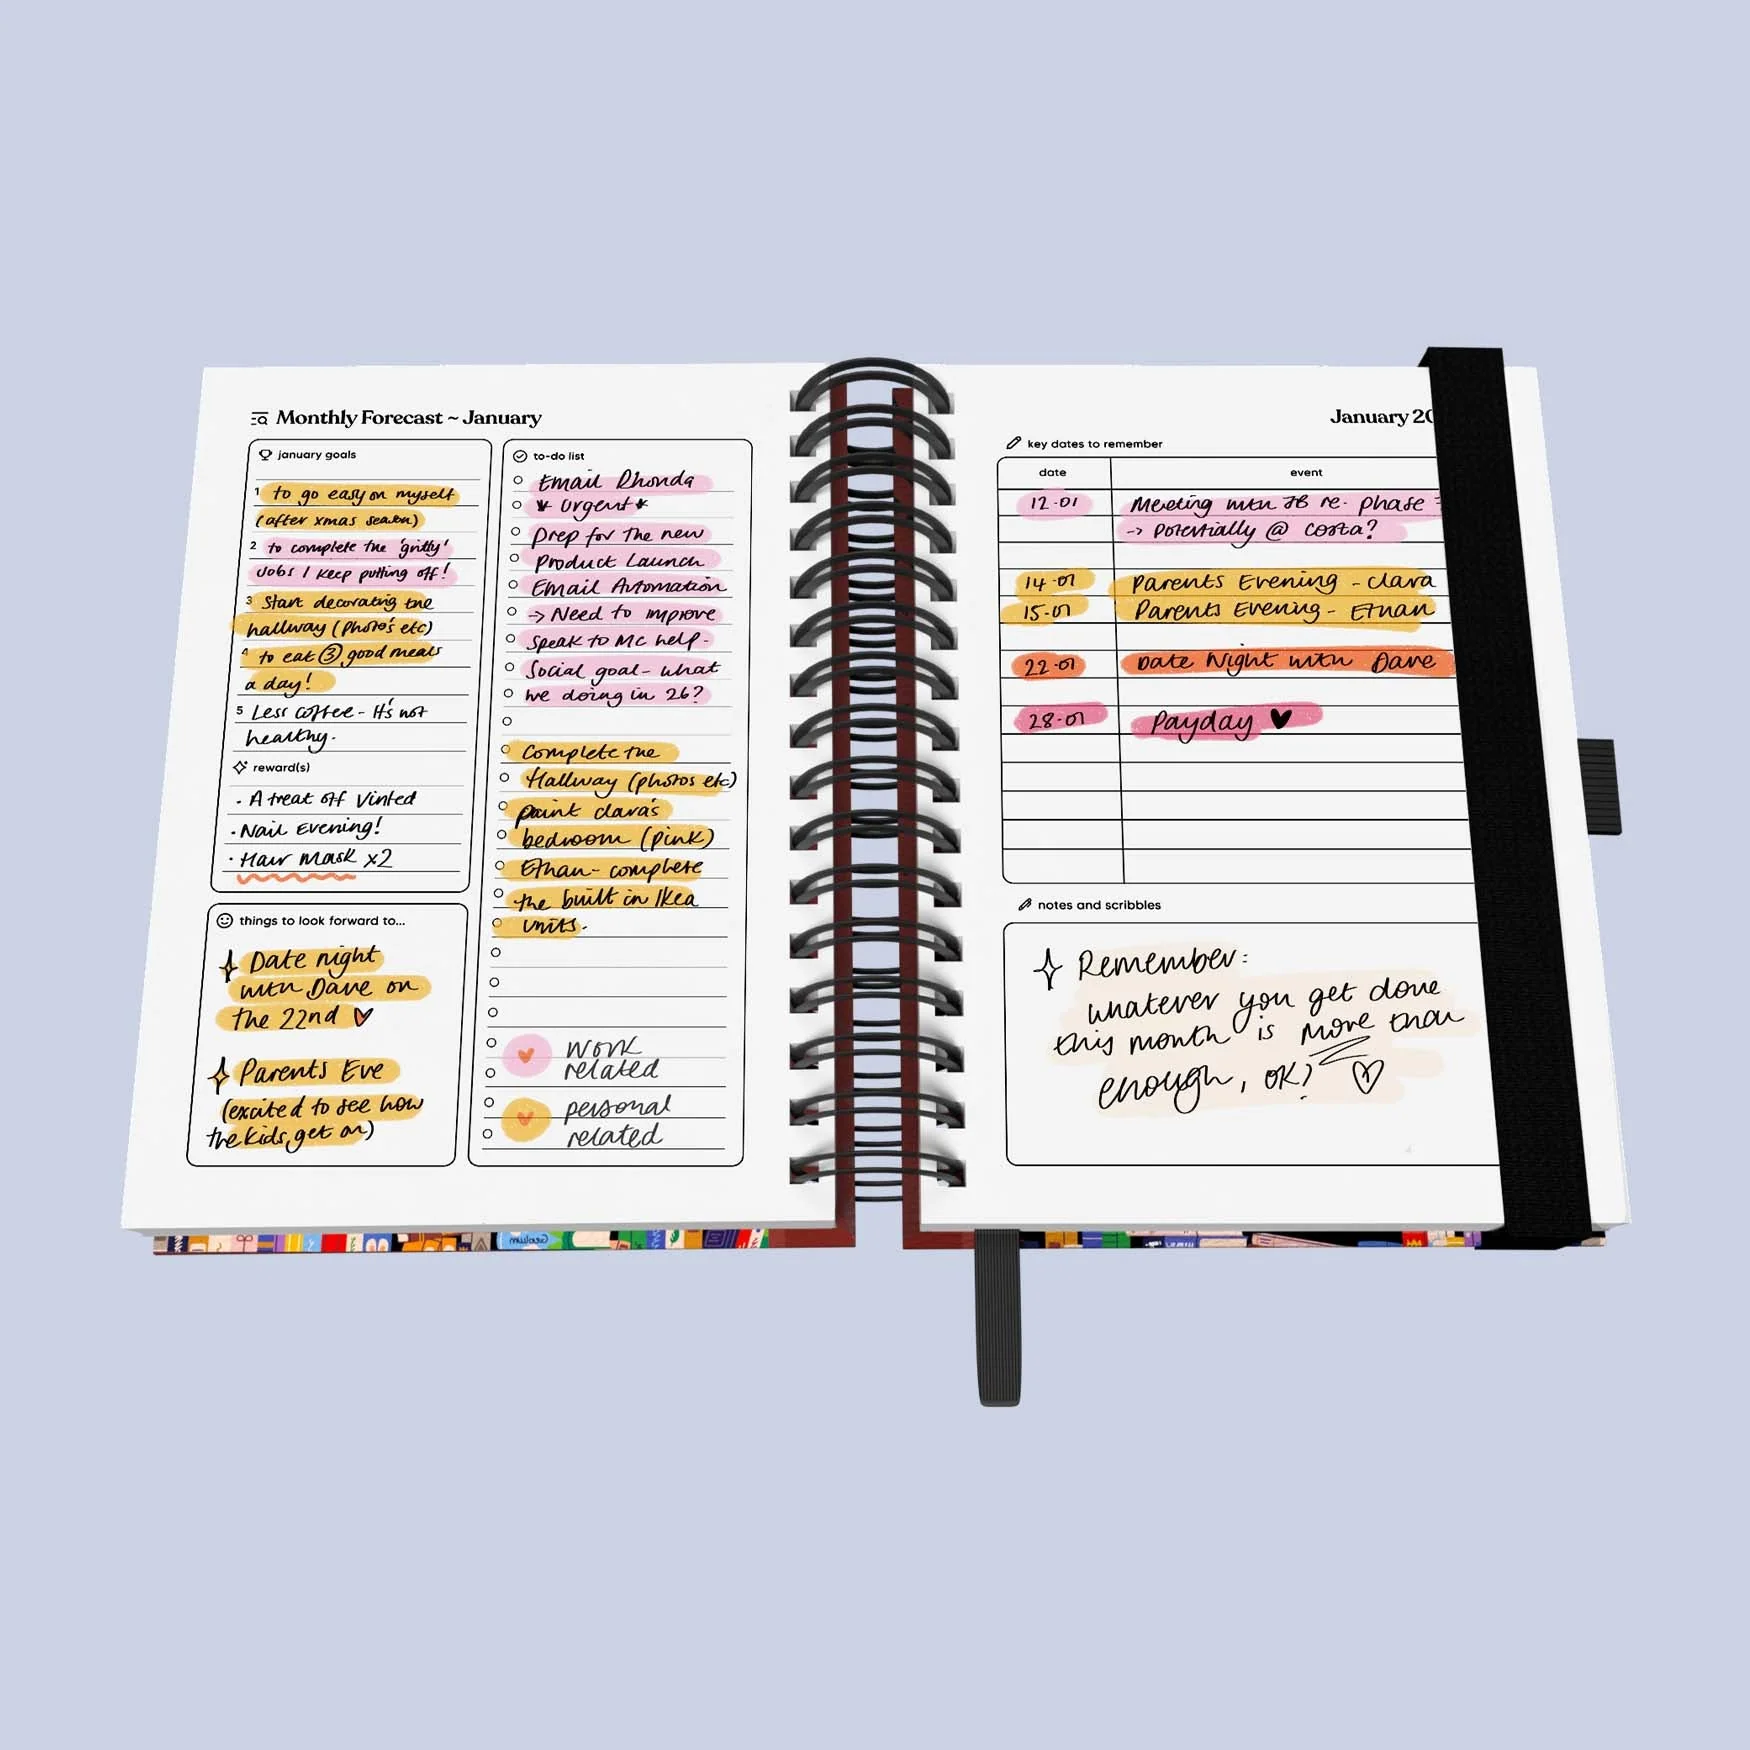 Monthly Forecast ~ January
january goals
1 to go easy on myself
(after xmas season)
2 to complete the 'gritty'
jobs I keep putting off!
3 Start decorating the
hallway (photo's etc)
4 to eat 3 good meals
a day!
5 Less coffee - It's not
healthy.
reward(s)
· A treat off Vinted
· Nail Evening!
· Hair mask x2
things to look forward to...
Date night
with Dave on
the 22nd
Parents Eve
(excited to see how
the kids get on)
to-do list
Email Rhonda
* Urgent *
Prep for the new
Product Launch
Email Automation
-> Need to improve
Speak to MC help.
Social goal - what
we doing in 26?
Complete the
Hallway (photos etc)
paint Clara's
bedroom (pink)
Ethan - complete
the built in Ikea
units.
work
related
personal
related
January 20
key dates to remember
date event
12-01 Meeting with JB re. phase
-> Potentially @ Costa?
14-01 Parents Evening - Clara
15-01 Parents Evening - Ethan
22-01 Date Night with Dave
28-01 Payday
notes and scribbles
Remember:
whatever you get done
this month is more than
enough, OK?